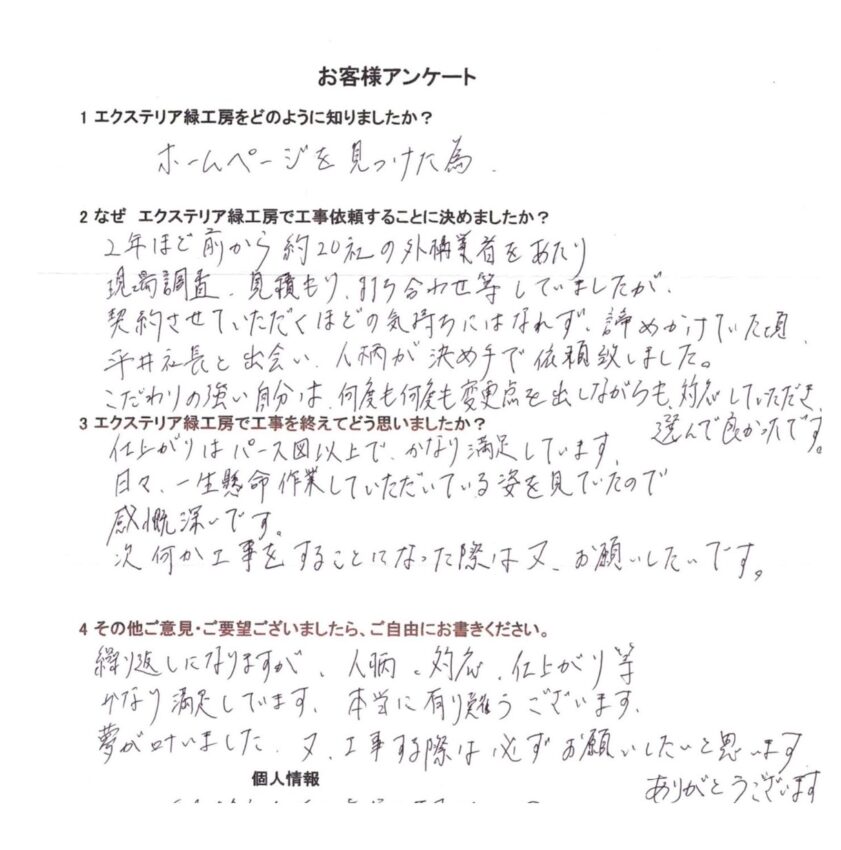 お客様アンケート
1 エクステリア緑工房をどのように知りましたか？
ホームページを見つけた為.
2 なぜ エクステリア緑工房で工事依頼することに決めましたか？
2年ほど前から約20社の外構業者をあたり
現場調査、見積もり、打ち合わせ等していましたが、
契約させていただくほどの気持ちにはなれず、諦めかけていた頃、
平井社長と出会い、人柄が決め手で依頼致しました。
こだわりの強い自分は、何度も何度も変更点を出しながらも、対応していただき、
選んで良かったです。
3 エクステリア緑工房で工事を終えてどう思いましたか？
仕上がりはパース図以上で、かなり満足しています。
日々、一生懸命作業していただいている姿を見ていたので
感慨深いです。
次何か工事をすることになった際は又、お願いしたいです。
4 その他ご意見・ご要望ございましたら、ご自由にお書きください。
繰り返しになりますが、人柄、対応、仕上がり等
かなり満足しています。本当に有り難うございます。
夢が叶いました。又、工事する際は必ずお願いしたいと思います
ありがとうございます
個人情報